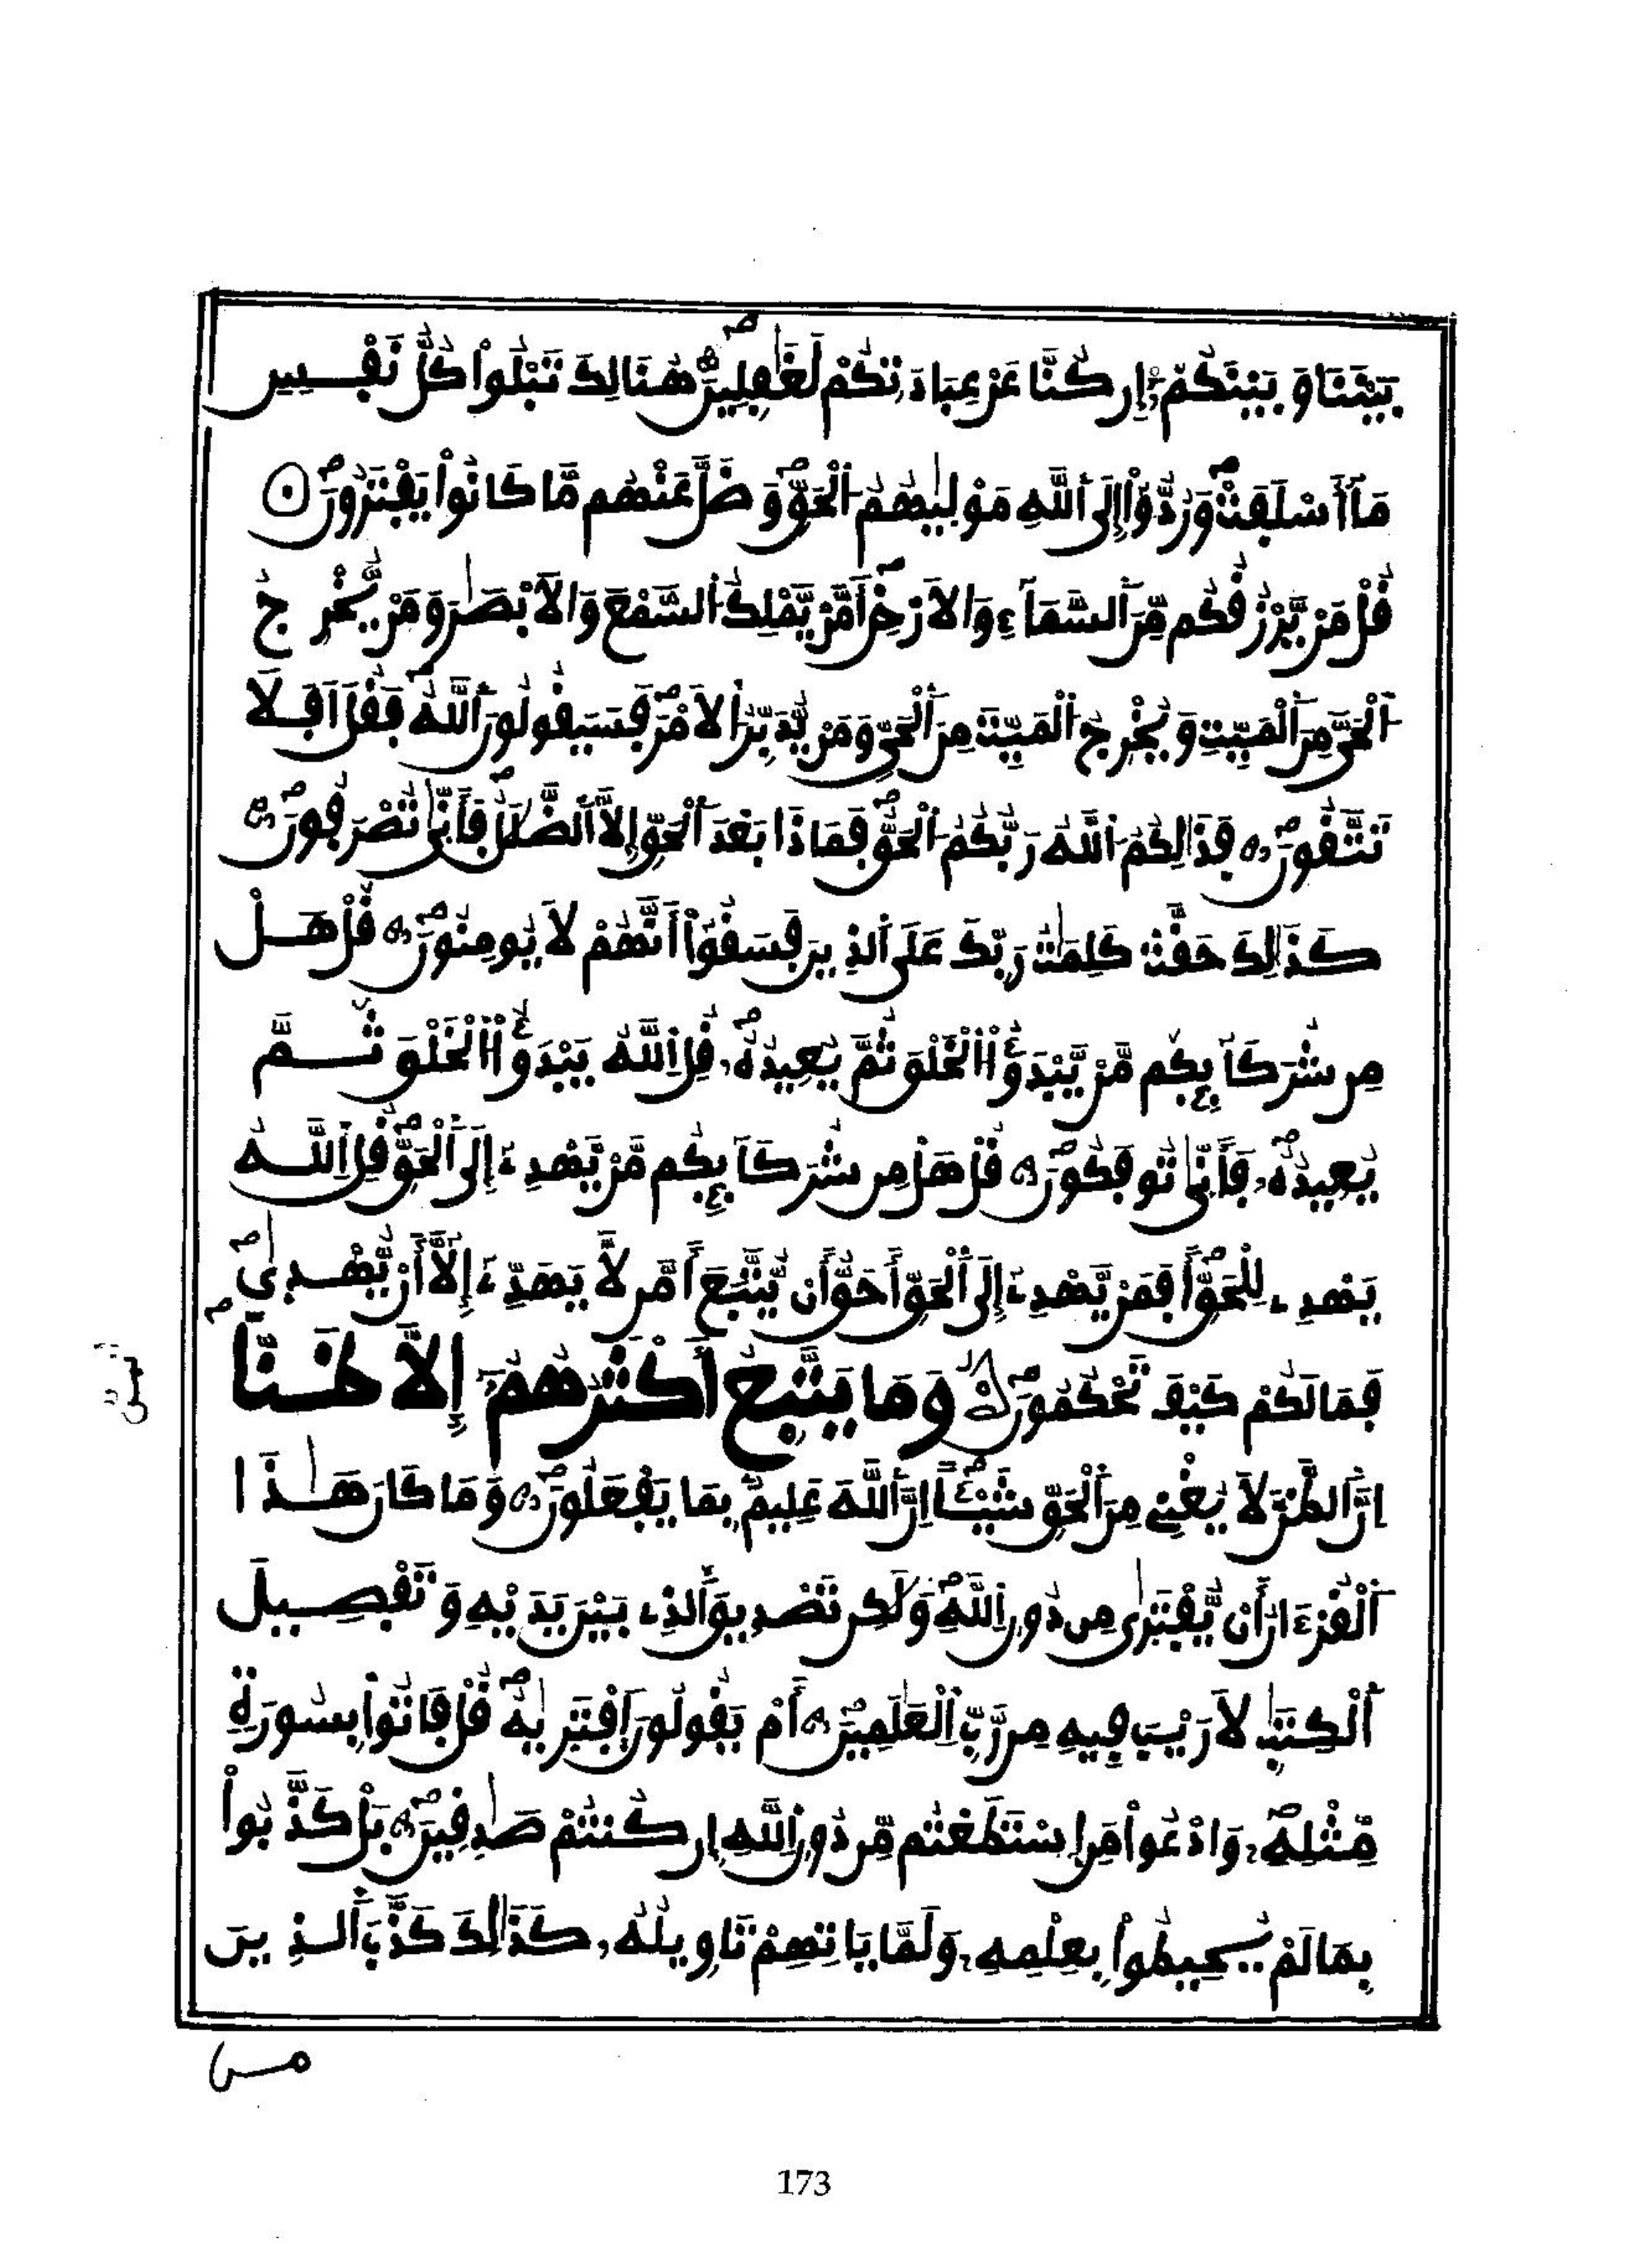 بَيْنَنَا وَبَيْنَكُمُۥٓ إِن كُنَّا عَنْ عِبَادَتِكُمْ لَغَٰفِلِينَ هُنَالِكَ تَبْلُواْ كُلُّ نَفْسٖ
مَّآ أَسْلَفَتْ وَرُدُّوٓاْ إِلَى اَ۬للَّهِ مَوْلَيٰهُمُ اُ۬لْحَقِّ وَضَلَّ عَنْهُم مَّا كَانُواْ يَفْتَرُونَ
قُلْ مَنْ يَّرْزُقُكُم مِّنَ اَ۬لسَّمَآءِ وَالَارْضِ أَمَّنْ يَّمْلِكُ اُ۬لسَّمْعَ وَالَابْصَٰرَ وَمَنْ يُّخْرِجُ
اُ۬لْحَيَّ مِنَ اَ۬لْمَيِّتِ وَيُخْرِجُ اُ۬لْمَيِّتَ مِنَ اَ۬لْحَيِّ وَمَنْ يُّدَبِّرُ اُ۬لَامْرَ فَسَيَقُولُونَ اَ۬للَّهُ فَقُلَ اَفَلَا
تَتَّقُونَ فَذَٰلِكُمُ اُ۬للَّهُ رَبُّكُمُ اُ۬لْحَقُّ فَمَاذَا بَعْدَ اَ۬لْحَقِّ إِلَّا اَ۬لضَّلَٰلُ فَأَنّ۪يٰ تُصْرَفُونَ
كَذَٰلِكَ حَقَّتْ كَلِمَٰتُ رَبِّكَ عَلَى اَ۬لذِينَ فَسَقُوٓاْ أَنَّهُمْ لَا يُومِنُونَ قُلْ هَلْ
مِن شُرَكَآئِكُم مَّنْ يَّبْدَؤُاْ اُ۬لْخَلْقَ ثُمَّ يُعِيدُهُۥ قُلِ اِ۬للَّهُ يَبْدَؤُاْ اُ۬لْخَلْقَ ثُمَّ
يُعِيدُهُۥ فَأَنّ۪يٰ تُوفَكُونَ قُلْ هَلْ مِن شُرَكَآئِكُم مَّنْ يَّهْدِےٓ إِلَى اَ۬لْحَقِّ قُلِ اِ۬للَّهُ
يَهْدِے لِلْحَقِّ أَفَمَنْ يَّهْدِےٓ إِلَى اَ۬لْحَقِّ أَحَقُّ أَنْ يُّتَّبَعَ أَمَّن لَّا يَهَدِّےٓ إِلَّآ أَنْ يُّهْد۪يٰ
فَمَا لَكُمْ كَيْفَ تَحْكُمُونَ وَمَا يَتَّبِعُ أَكْثَرُهُمُۥٓ إِلَّا ظَنّاً
اِنَّ اَ۬لظَّنَّ لَا يُغْنِے مِنَ اَ۬لْحَقِّ شَيْـٔاً اِنَّ اَ۬للَّهَ عَلِيمُۢ بِمَا يَفْعَلُونَ وَمَا كَانَ هَٰذَا
اَ۬لْقُرْءَانُ أَنْ يُّفْتَر۪يٰ مِن دُونِ اِ۬للَّهِ وَلَٰكِن تَصْدِيقَ اَ۬لذِے بَيْنَ يَدَيْهِ وَتَفْصِيلَ
اَ۬لْكِتَٰبِ لَا رَيْبَ فِيهِ مِن رَّبِّ اِ۬لْعَٰلَمِينَ أَمْ يَقُولُونَ اَ۪فْتَر۪يٰهُ قُلْ فَاتُواْ بِسُورَةٖ
مِّثْلِهِۦ وَادْعُواْ مَنِ اِ۪سْتَطَعْتُم مِّن دُونِ اِ۬للَّهِ إِن كُنتُمْ صَٰدِقِينَ بَلْ كَذَّبُواْ
بِمَا لَمْ يُحِيطُواْ بِعِلْمِهِۦ وَلَمَّا يَاتِهِمْ تَاوِيلُهُۥ كَذَٰلِكَ كَذَّبَ اَ۬لذِينَ
من
173